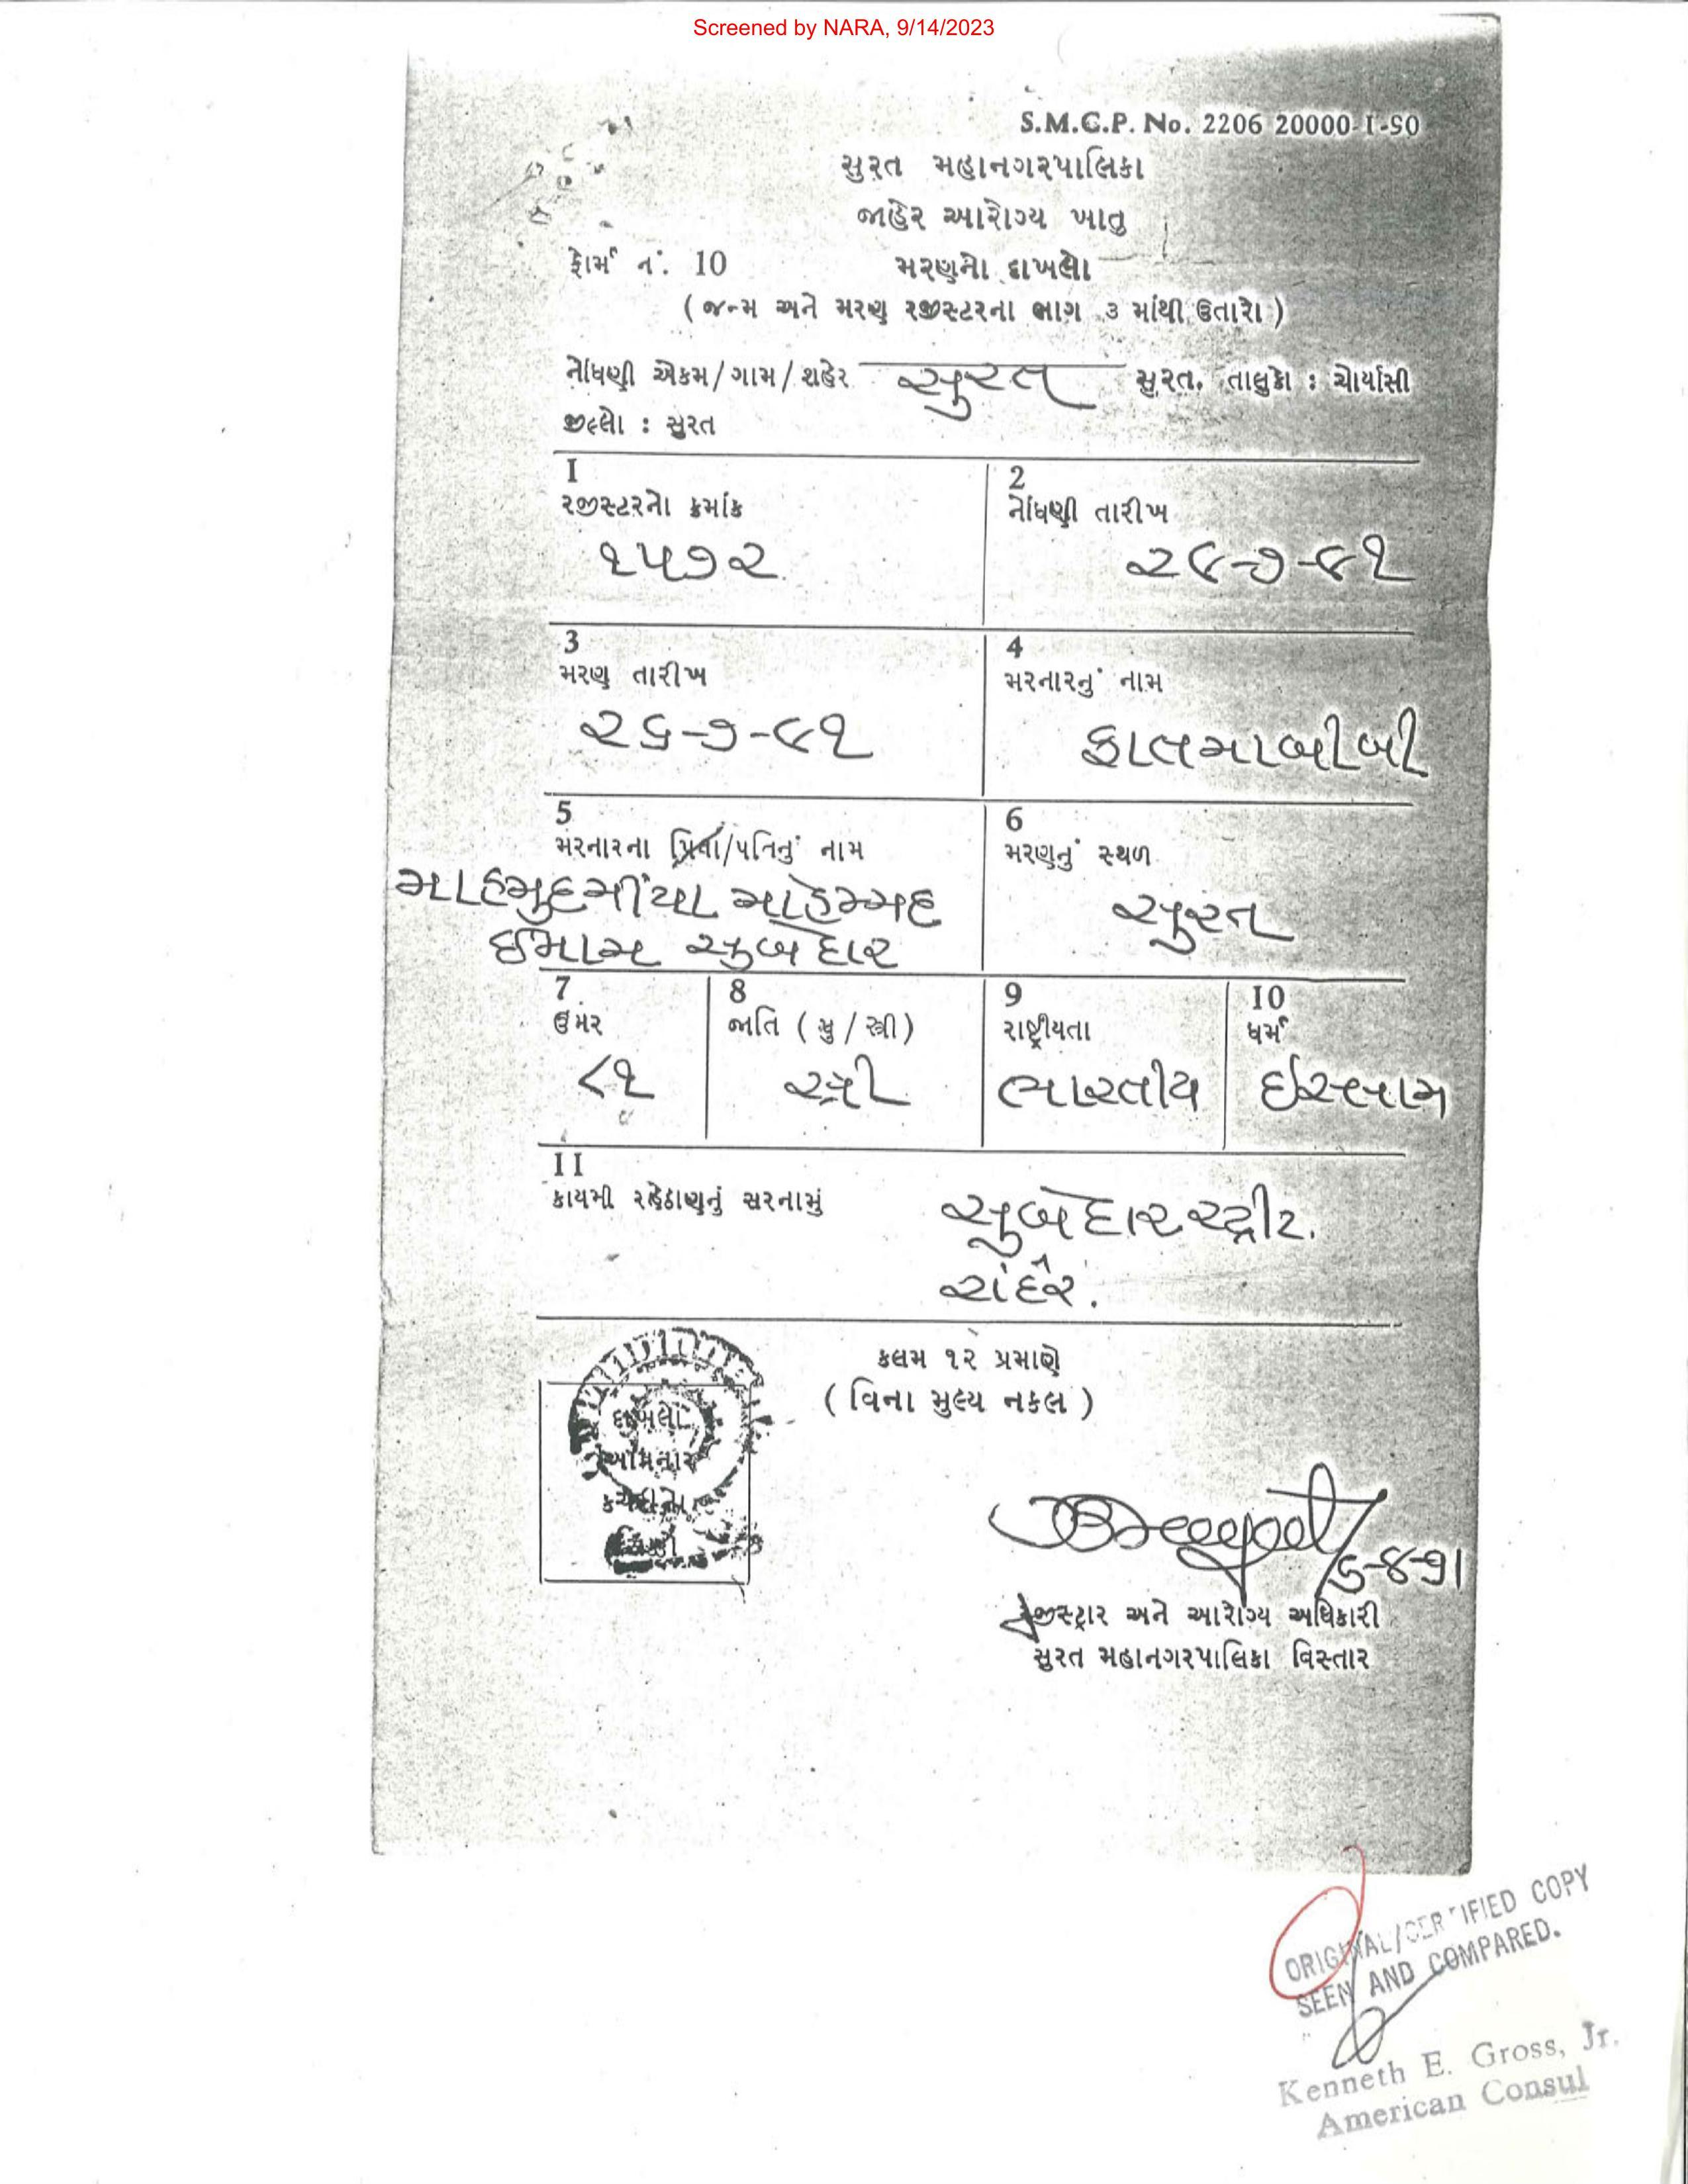 Screened by NARA, 9/14/2023
S.M.C.P. No. 2206 20000-1-90
સુરત મહાનગરપાલિકા
જાહેર આરોગ્ય ખાતુ
ફોર્મ નં. 10 મરણનો દાખલો
( જન્મ અને મરણ રજીસ્ટરના ભાગ ૩ માંથી ઉતારો )
નોંધણી એકમ/ગામ/શહેર સુરત સુરત. તાલુકો : ચોર્યાસી
જીલ્લો : સુરત
1 2
રજીસ્ટરનો ક્રમાંક નોંધણી તારીખ
૧૫૭૨ ૨૯-૭-૯૧
3 4
મરણ તારીખ મરનારનું નામ
૨૬-૭-૯૧ ફાતમાબીબી
5 6
મરનારના પિતા/પતિનું નામ મરણનું સ્થળ
માહમુદમીંયા મોહમ્મદ
ઈમામ સુબેદાર સુરત
7 8 9 10
ઉંમર જાતિ ( પુ / સ્ત્રી ) રાષ્ટ્રીયતા ધર્મ
૮૧ સ્ત્રી ભારતીય ઈસ્લામ
11
કાયમી રહેઠાણનું સરનામું સુબેદાર સ્ટ્રીટ.
રાંદેર.
કલમ ૧૨ પ્રમાણે
( વિના મુલ્ય નકલ )
દાખલો
આપનાર
કચેરીનો
સિક્કો
6-8-91
રજીસ્ટ્રાર અને આરોગ્ય અધિકારી
સુરત મહાનગરપાલિકા વિસ્તાર
ORIGINAL/CERTIFIED COPY
SEEN AND COMPARED.
Kenneth E. Gross, Jr.
American Consul